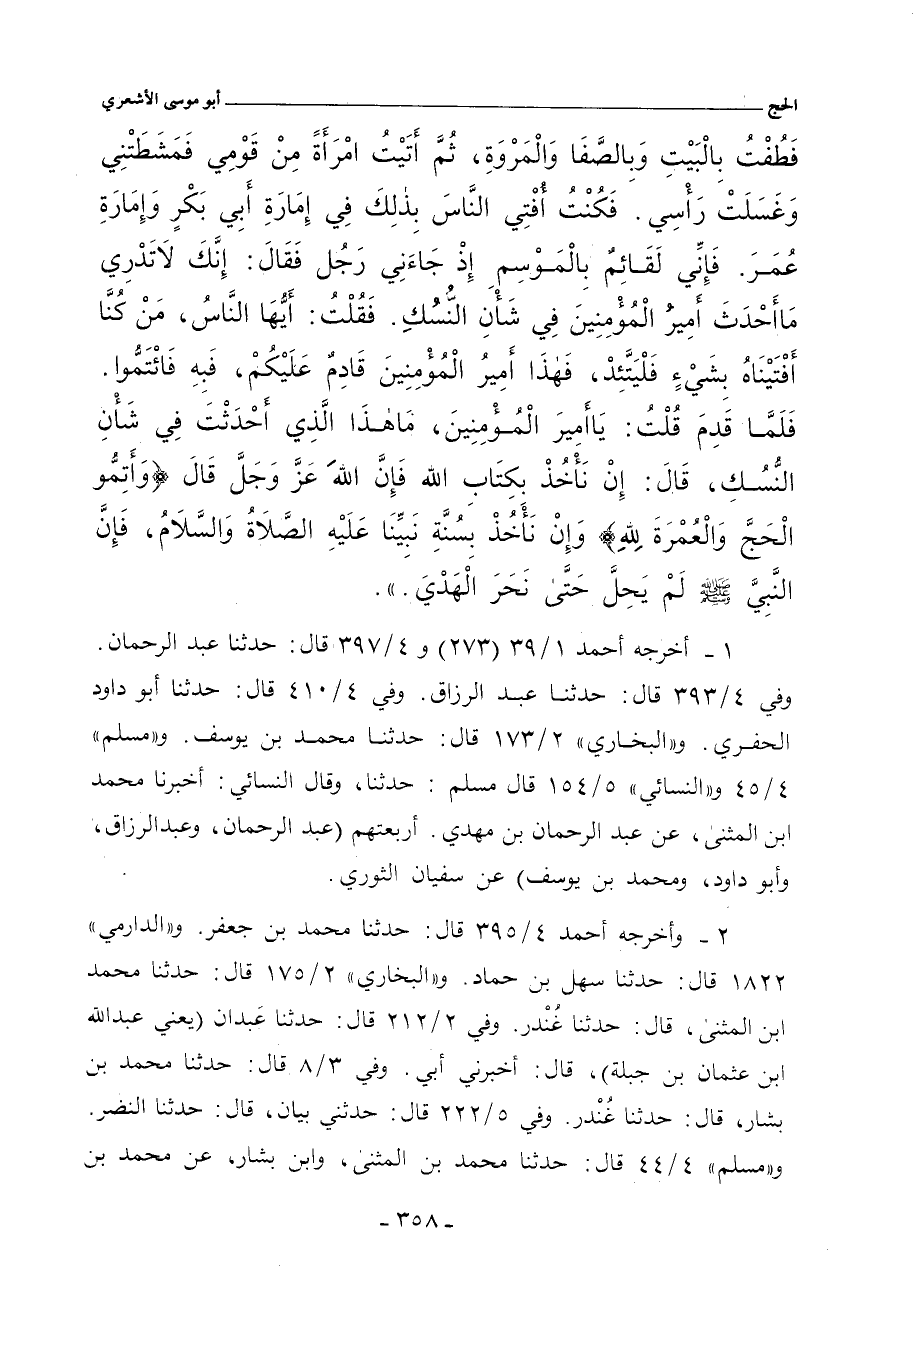 الحج ــــــــــــــــــــ أبو موسى الأشعري
فَطُفْتُ بِالْبَيْتِ وَبِالصَّفَا وَالْمَرْوَةِ، ثُمَّ أَتَيْتُ امْرَأَةً مِنْ قَوْمِي فَمَشَطَتْنِي
وَغَسَلَتْ رَأْسِي. فَكُنْتُ أُفْتِي النَّاسَ بِذٰلِكَ فِي إِمَارَةِ أَبِي بَكْرٍ وَإِمَارَةِ
عُمَرَ. فَإِنِّي لَقَائِمٌ بِالْمَوْسِمِ إِذْ جَاءَنِي رَجُل فَقَالَ: إِنَّكَ لَاتَدْرِي
مَاأَحْدَثَ أَمِيرُ الْمُؤْمِنِينَ فِي شَأْنِ النُّسُكِ. فَقُلْتُ: أَيُّهَا النَّاسُ، مَنْ كُنَّا
أَفْتَيْنَاهُ بِشَيْءٍ فَلْيَتَّئِدْ، فَهٰذَا أَمِيرُ الْمُؤْمِنِينَ قَادِمٌ عَلَيْكُمْ، فَبِهِ فَائْتَمُّوا.
فَلَمَّا قَدِمَ قُلْتُ: يَاأَمِيرَ الْمُؤْمِنِينَ، مَاهٰذَا الَّذِي أَحْدَثْتَ فِي شَأْنِ
النُّسُكِ، قَالَ: إِنْ نَأْخُذْ بِكِتَابِ الله فَإِنَّ اللهَ عَزَّ وَجَلَّ قَالَ ﴿وَأَتِمُّو
الْحَجَّ وَالْعُمْرَةَ لِلّٰهِ﴾ وَإِنْ نَأْخُذْ بِسُنَّةِ نَبِيِّنَا عَلَيْهِ الصَّلَاةُ وَالسَّلَامُ، فَإِنَّ
النَّبِيَّ ﷺ لَمْ يَحِلَّ حَتَّىٰ نَحَرَ الْهَدْيَ.».
١ ـ أخرجه أحمد ٣٩/١ (٢٧٣) و ٣٩٧/٤ قال: حدثنا عبد الرحمان.
وفي ٣٩٣/٤ قال: حدثنا عبد الرزاق. وفي ٤١٠/٤ قال: حدثنا أبو داود
الحفري. و«البخاري» ١٧٣/٢ قال: حدثنا محمد بن يوسف. و«مسلم»
٤٥/٤ و«النسائي» ١٥٤/٥ قال مسلم : حدثنا، وقال النسائي: أخبرنا محمد
ابن المثنىٰ، عن عبد الرحمان بن مهدي. أربعتهم (عبد الرحمان، وعبدالرزاق،
وأبو داود، ومحمد بن يوسف) عن سفيان الثوري.
٢ ـ وأخرجه أحمد ٣٩٥/٤ قال: حدثنا محمد بن جعفر. و«الدارمي»
١٨٢٢ قال: حدثنا سهل بن حماد. و«البخاري» ١٧٥/٢ قال: حدثنا محمد
ابن المثنىٰ، قال: حدثنا غُنْدر. وفي ٢١٢/٢ قال: حدثنا عَبدان (يعني عبدالله
ابن عثمان بن جبلة)، قال: أخبرني أبي. وفي ٨/٣ قال: حدثنا محمد بن
بشار، قال: حدثنا غُنْدر. وفي ٢٢٢/٥ قال: حدثني بيان، قال: حدثنا النضر.
و«مسلم» ٤٤/٤ قال: حدثنا محمد بن المثنىٰ، وابن بشار، عن محمد بن
ـ ٣٥٨ ـ